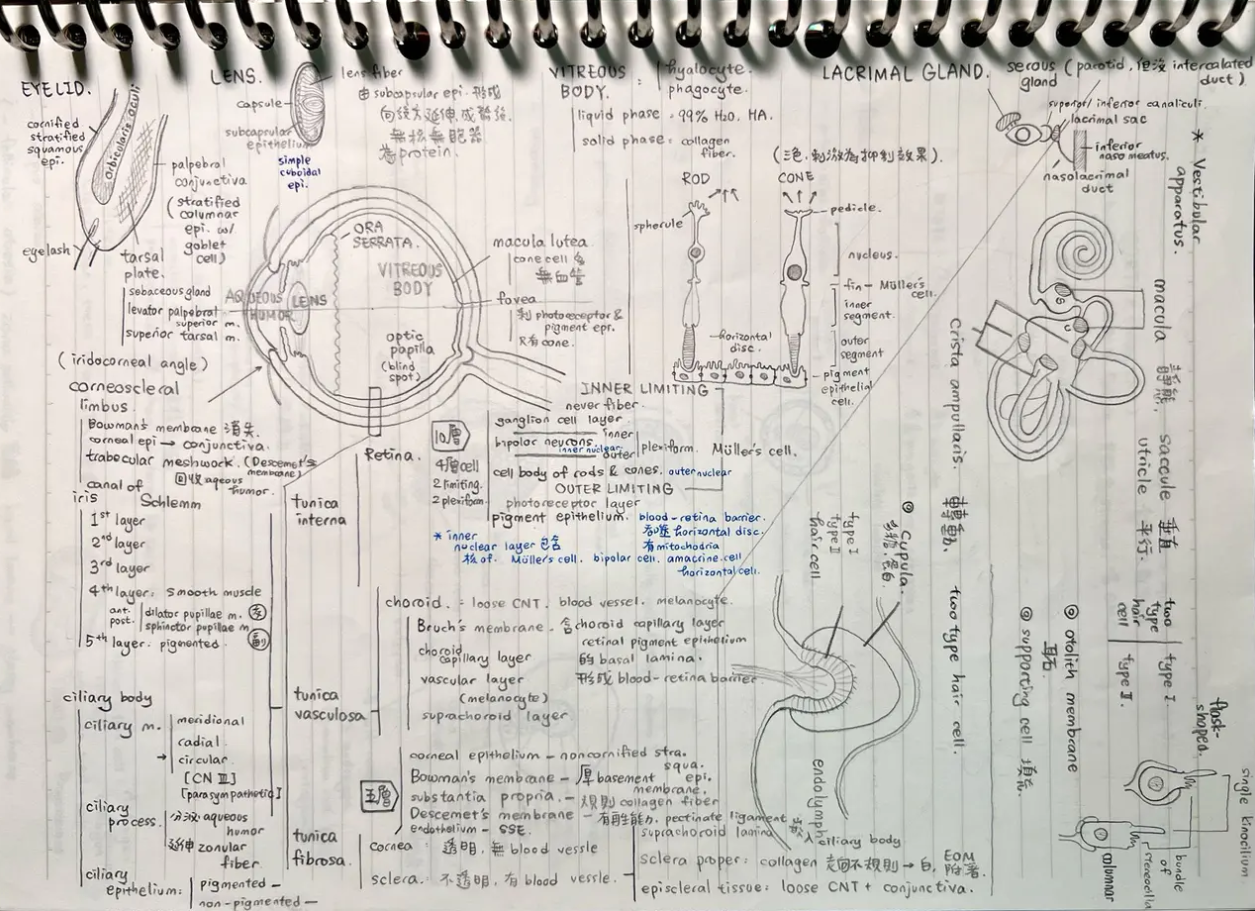 EYELID.
cornified
stratified
squamous
epi.
Orbicularis oculi
palpebral
conjunctiva
(stratified
columnar
epi. w/
goblet
cell)
eyelash
tarsal
plate.
sebaceous gland
levator palpebrat
superior m.
superior tarsal m.
LENS.
capsule
subcapsular
epithelium
simple
cuboidal
epi.
lens fiber
由 subcapsular epi. 形成
無核無胞器
為 protein.
VITREOUS
BODY.
hyalocyte.
phagocyte.
liquid phase. 99% H2O. HA.
solid phase: collagen
fiber.
LACRIMAL GLAND.
serous (parotid, 但沒 intercalated
gland
duct)
superior/inferior canaliculi.
lacrimal sac
inferior
naso meatus.
nasolacrimal
duct
ORA
SERRATA.
VITREOUS
BODY
AQUEOUS
HUMOR
LENS
optic
papilla
(blind
spot)
macula lutea
cone cell 多
無血管
fovea
剩 photoreceptor &
pigment epi.
只有 cone.
(三色. 刺激為抑制效果).
ROD
CONE
spherule
pedicle.
nucleus.
fin - Müller's
cell.
inner
segment.
outer
segment
horizontal
disc.
pigment
epithelial
cell.
(iridocorneal angle)
corneoscleral
limbus.
Bowman's membrane 消失.
corneal epi → conjunctiva.
trabecular meshwork. (Descemet's
membrane)
canal of
Schlemm
回收 aqueous
humor.
iris
1st layer
2nd layer
3rd layer
4th layer: smooth muscle
ant.
post.
dilator pupillae m. 交
sphincter pupillae m. 副
5th layer. pigmented.
ciliary body
ciliary m.
meridional
radial
→ circular
[CN III]
[parasympathetic]
ciliary
process.
分泌 aqueous
humor
延伸 zonular
fiber.
ciliary
epithelium:
pigmented —
non-pigmented —
tunica
interna
Retina.
10層
4層cell
2 limiting.
2 plexiform.
INNER LIMITING
never fiber.
ganglion cell layer
inner
bipolar neurons
inner nuclear
outer
plexiform.
Müller's cell.
cell body of rods & cones. outer nuclear
OUTER LIMITING
photoreceptor layer
pigment epithelium. blood-retina barrier.
吞噬 horizontal disc.
有 mitochodria
* inner
nuclear layer 包含
核 of. Müller's cell. bipolar cell. amacrine cell
horizontal cell.
tunica
vasculosa
choroid. = loose CNT. blood vessel. melanocyte.
Bruch's membrane. 含 choroid capillary layer
retinal pigment epithelium
的 basal lamina.
choroid
capillary layer
vascular layer
(melanocyte)
形成 blood-retina barrier
suprachoroid layer
tunica
fibrosa.
五層
corneal epithelium — noncornified stra.
squa.
epi.
Bowman's membrane — 厚 basement
membrane.
substantia propria. — 規則 collagen fiber
Descemet's membrane — 有再生能力. pectinate ligament
endothelium — SSE.
cornea: 透明, 無 blood vessle
sclera: 不透明, 有 blood vessle.
suprachoroid lamina
ciliary body
sclera proper: collagen 走向不規則 → 白, EOM
附著.
episcleral tissue: loose CNT + conjunctiva.
* Vestibular
apparatus.
macula
靜態.
saccule 垂直
utricle 平行.
two
type
hair
cell
type I.
type II.
◎ otolith membrane
耳石
◎ supporting cell
flask-
shaped.
single kinocilium.
bundle
of
stereocilia
columnar
crista ampullaris.
轉動.
two type hair cell.
◎ Cupula.
type I
type II
hair cell
endolymph
S
C